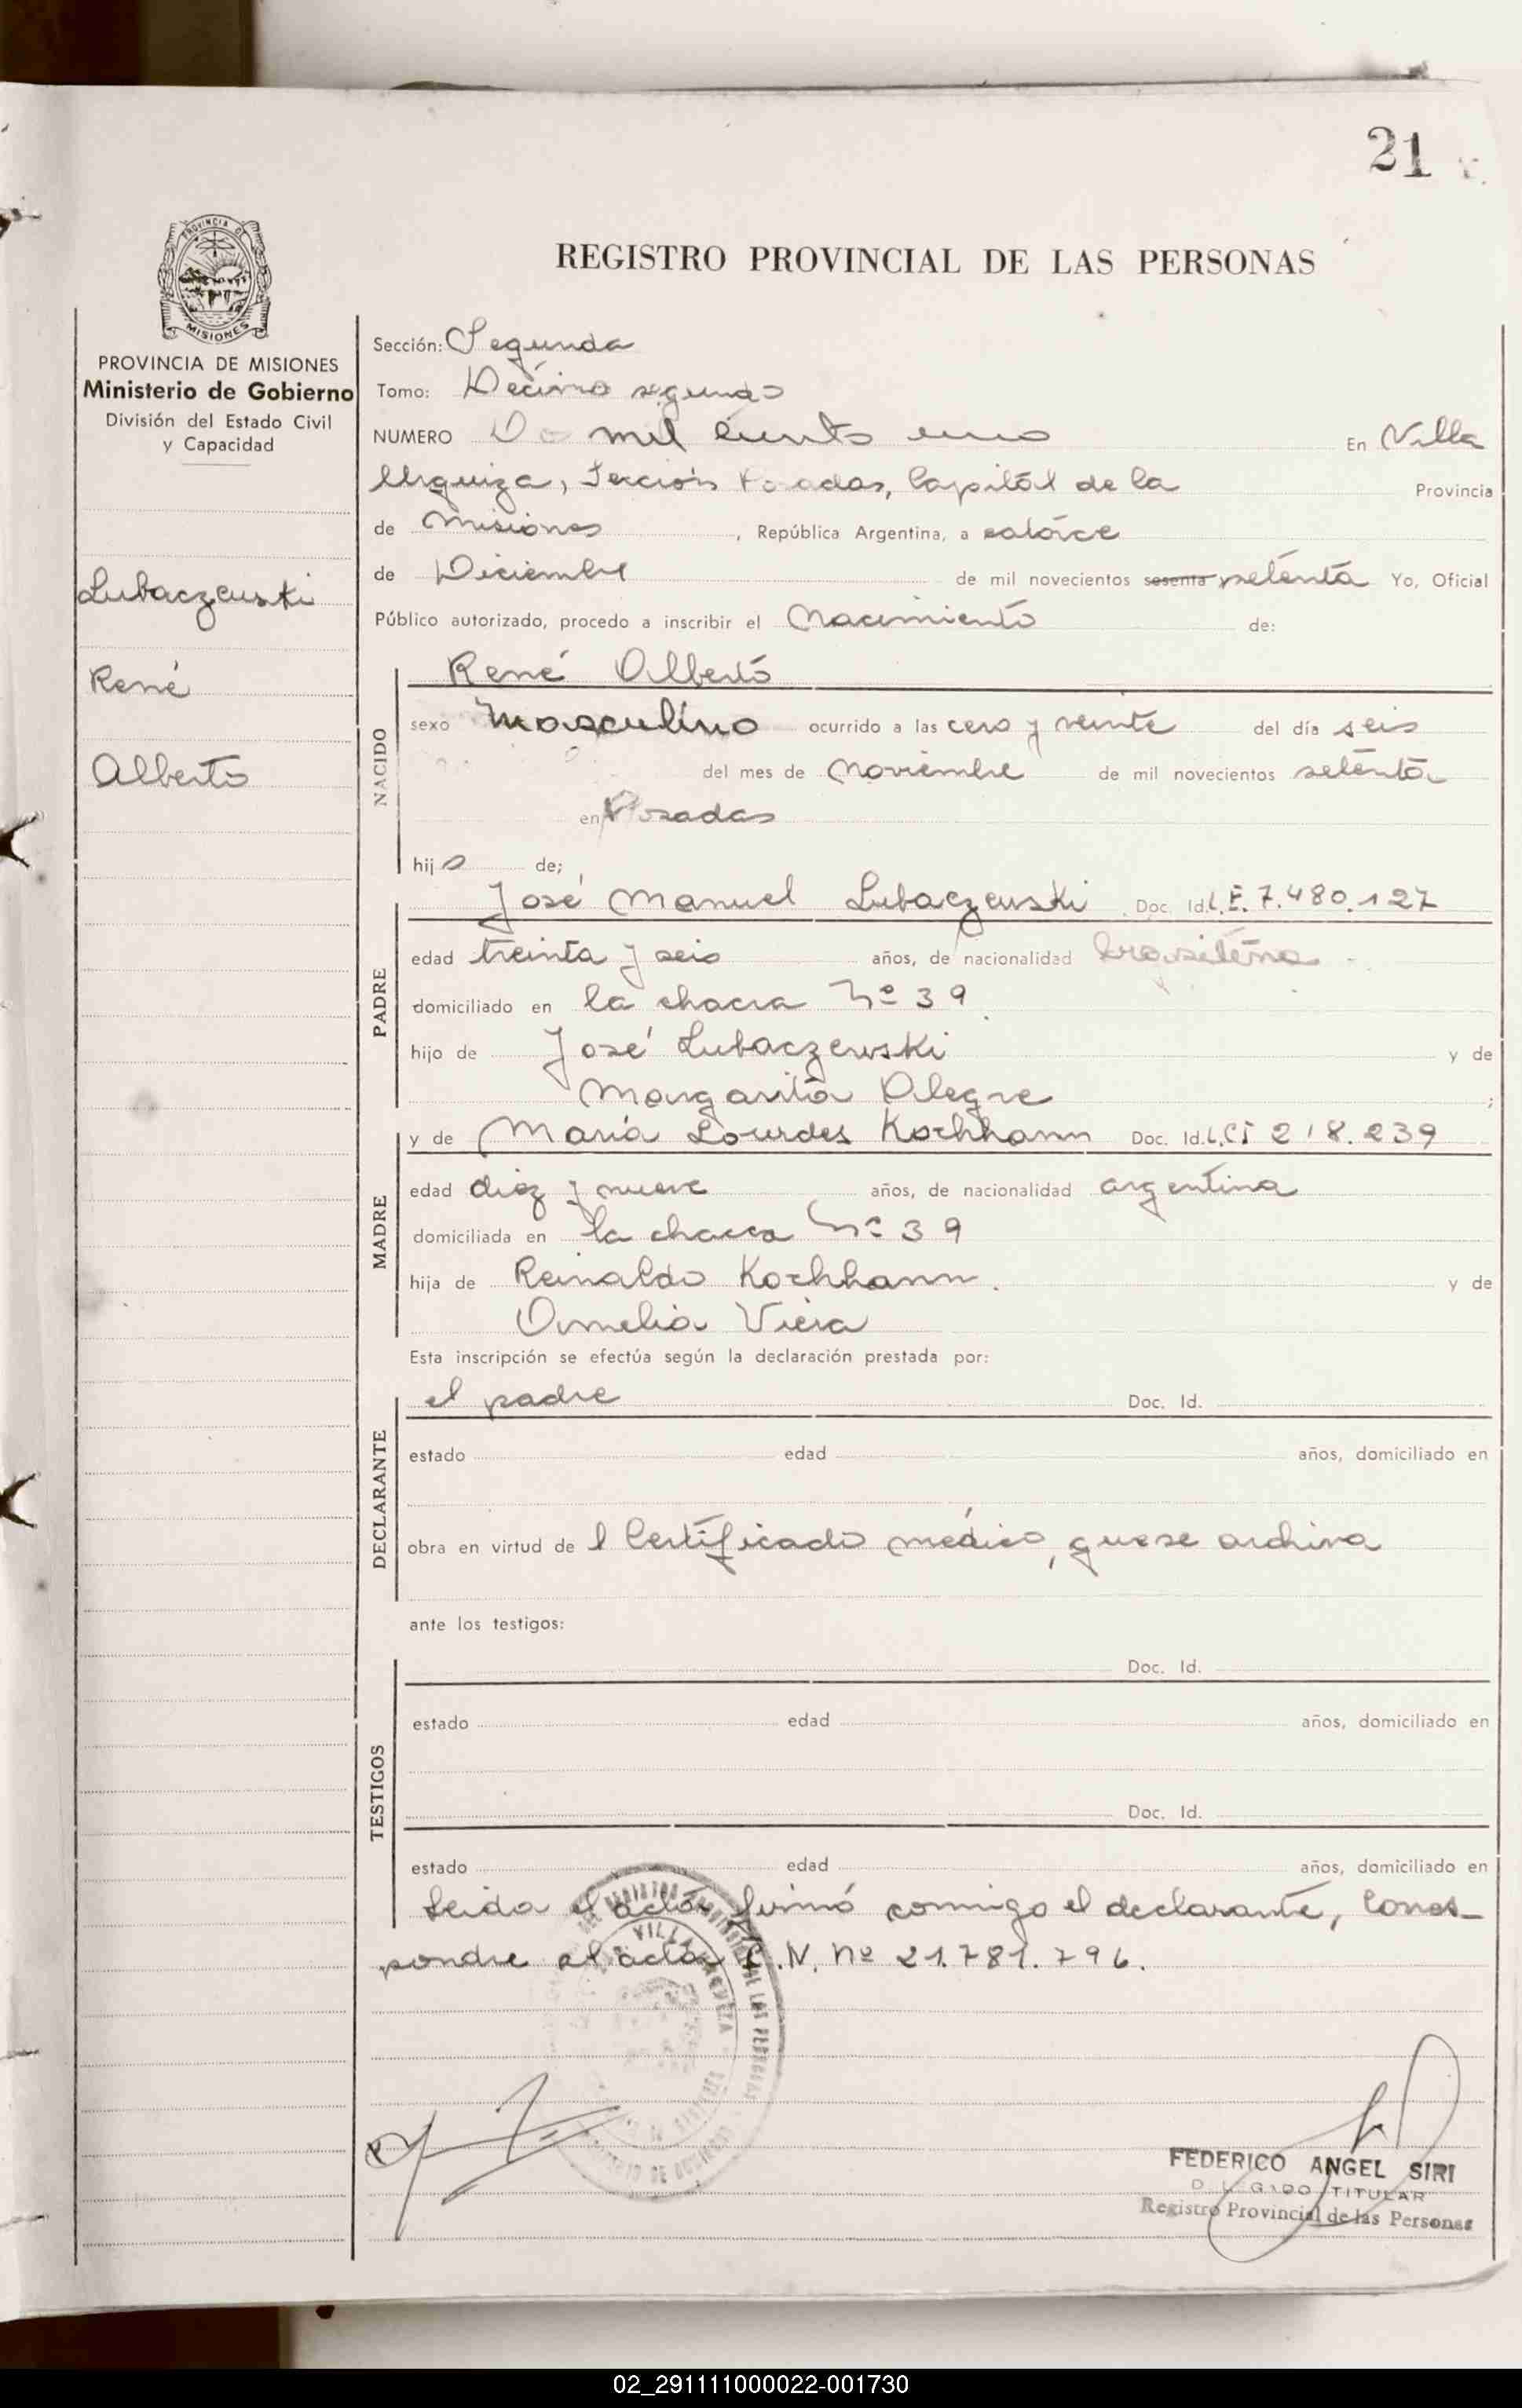 21
REGISTRO PROVINCIAL DE LAS PERSONAS
PROVINCIA DE
MISIONES
PROVINCIA DE MISIONES
Ministerio de Gobierno
División del Estado Civil
y Capacidad
Lubaczewski
René
Alberto
Sección: Segunda
Tomo: Decimo segundo
NUMERO Dos mil ciento uno En Villa
Urquiza, Sección Posadas, Capital de la Provincia
de Misiones, República Argentina, a catorce
de Diciembre de mil novecientos sesenta setenta Yo, Oficial
Público autorizado, procedo a inscribir el Nacimiento de:
René Alberto
NACIDO
sexo Masculino ocurrido a las cero y veinte del día seis
del mes de Noviembre de mil novecientos setenta
en Posadas
hijo de;
José Manuel Lubaczewski Doc. Id. L.E. 7.480.127
PADRE
edad treinta y seis años, de nacionalidad brasileña
domiciliado en la chacra Nº 39
hijo de José Lubaczewski y de
Margarita Alegre;
y de María Lourdes Kochhann Doc. Id. L.C. 218.239
MADRE
edad diez y nueve años, de nacionalidad argentina
domiciliada en la chacra Nº 39
hija de Reinaldo Kochhann. y de
Omelia Viera
Esta inscripción se efectúa según la declaración prestada por:
el padre Doc. Id.
DECLARANTE
estado edad años, domiciliado en
obra en virtud de l Certificado médico, que se archiva
ante los testigos:
Doc. Id.
TESTIGOS
estado edad años, domiciliado en
Doc. Id.
estado edad años, domiciliado en
Leida el acta firmó conmigo el declarante, Corres-
pondre al acta C.N. Nº 21.781.796.
FEDERICO ANGEL SIRI
DELEGADO TITULAR
Registro Provincial de las Personas
02_291111000022-001730